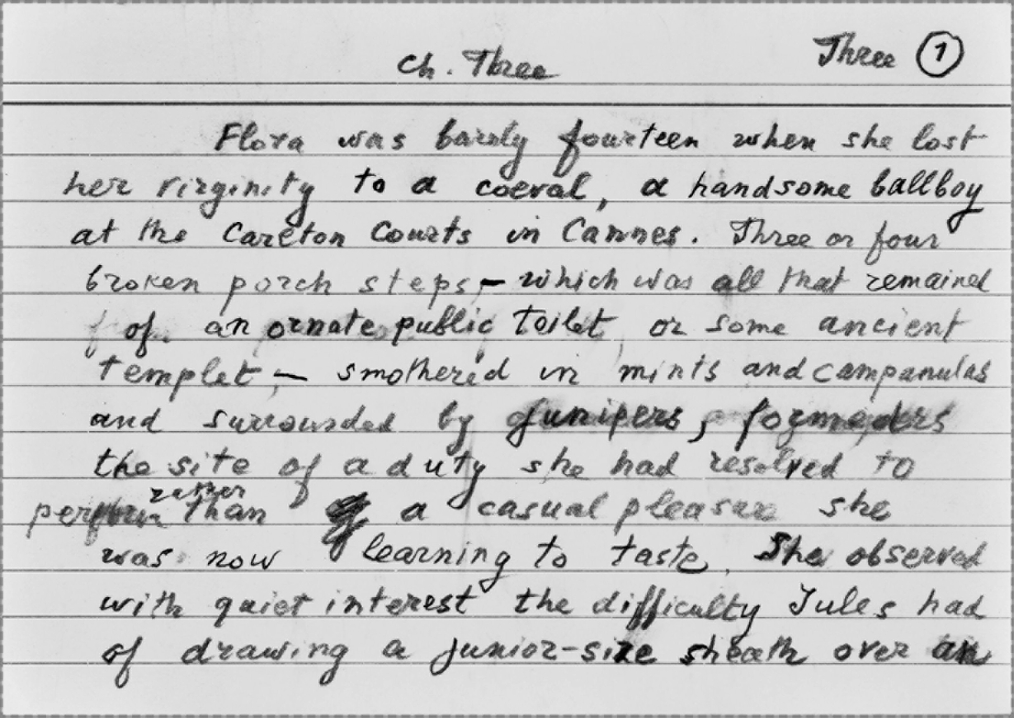 Ch. Three Three 1
Flora was barely fourteen when she lost
her virginity to a coeval, a handsome ballboy
at the Carlton Courts in Cannes. Three or four
broken porch steps – which was all that remained
of an ornate public toilet or some ancient
templet – smothered in mints and campanulas
and surrounded by junipers,
the site of a duty she had resolved to
perform rather than a casual pleasure she
was now learning to taste. She observed
with quiet interest the difficulty Jules had
of drawing a junior-size sheath over an